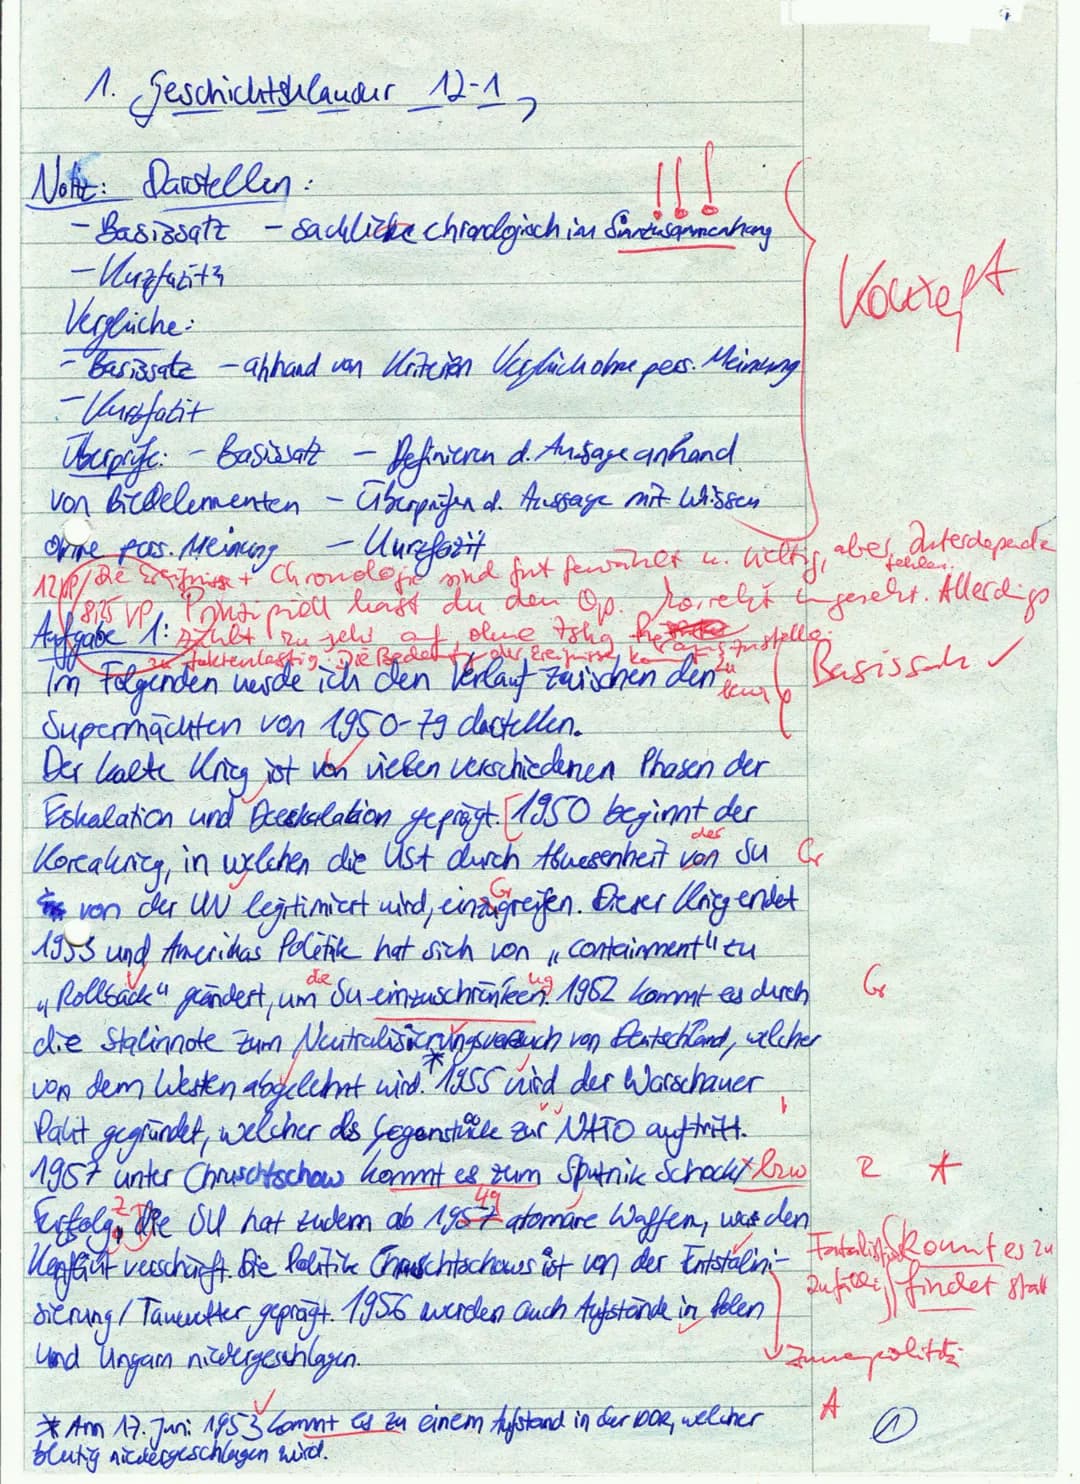 1. Geschichtsklausur 12-1
Notiz: Darstellen:
!!!
- Basissatz - sachliche chronologisch im Sinnzusammenhang
- Kurzfazit
Konzept
Vergleiche:
- Basissatz - anhand von Kriterien Vergleich ohne pers. Meinung
- Kurzfazit
Überprüfe: - Basissatz - Definieren d. Aussage anhand
von Bildelementen - Überprüfen d. Aussage mit Wissen
ohne pers. Meinung - Kurzfazit
Die Ereignisse + Chronologie sind gut gewählt u. richtig, aber Interdependenz fehlen.
8,5 VP. Prinzipiell hast du den Op. korrekt umgesetzt. Allerdings
Aufgabe 1: zählst du sehr auf, ohne
zu faktenlastig. Die Bedeut. der Ereignisse
Im Folgenden werde ich den Verlauf zwischen den
Basissatz ✓
Supermächten von 1950-79 darstellen.
Der kalte Krieg ist von vielen verschiedenen Phasen der
Eskalation und Deeskalation geprägt. [1950 beginnt der
Koreakrieg, in welchen die USA durch Abwesenheit von der SU Gr
von der UN legitimiert wird, einzugreifen. Dieser Krieg endet
Gr
1953 und Amerikas Politik hat sich von „containment" zu
„Rollback" geändert, um die SU einzuschränken. 1952 kommt es durch Gr
die Stalinnote zum Neutralisierungsversuch von Deutschland, welcher
von dem Westen abgelehnt wird.* 1955 wird der Warschauer
Pakt gegründet, welcher als Gegenstück zur NATO auftritt.
1957 unter Chruschtschow kommt es zum Sputnik Schock/ bzw R *
Erfolg. Die SU hat zudem ab 1957 atomare Waffen, was den
49
Z
Konflikt verschärft. Die Politik Chruschtschows ist von der Entstalini-
kommt es zu
findet statt
sierung/Tauwetter geprägt. 1956 werden auch Aufstände in Polen
und Ungarn niedergeschlagen.
Innenpolitik
* Am 17. Juni 1953 kommt es zu einem Aufstand in der DDR, welcher A
blutig niedergeschlagen wird.
1